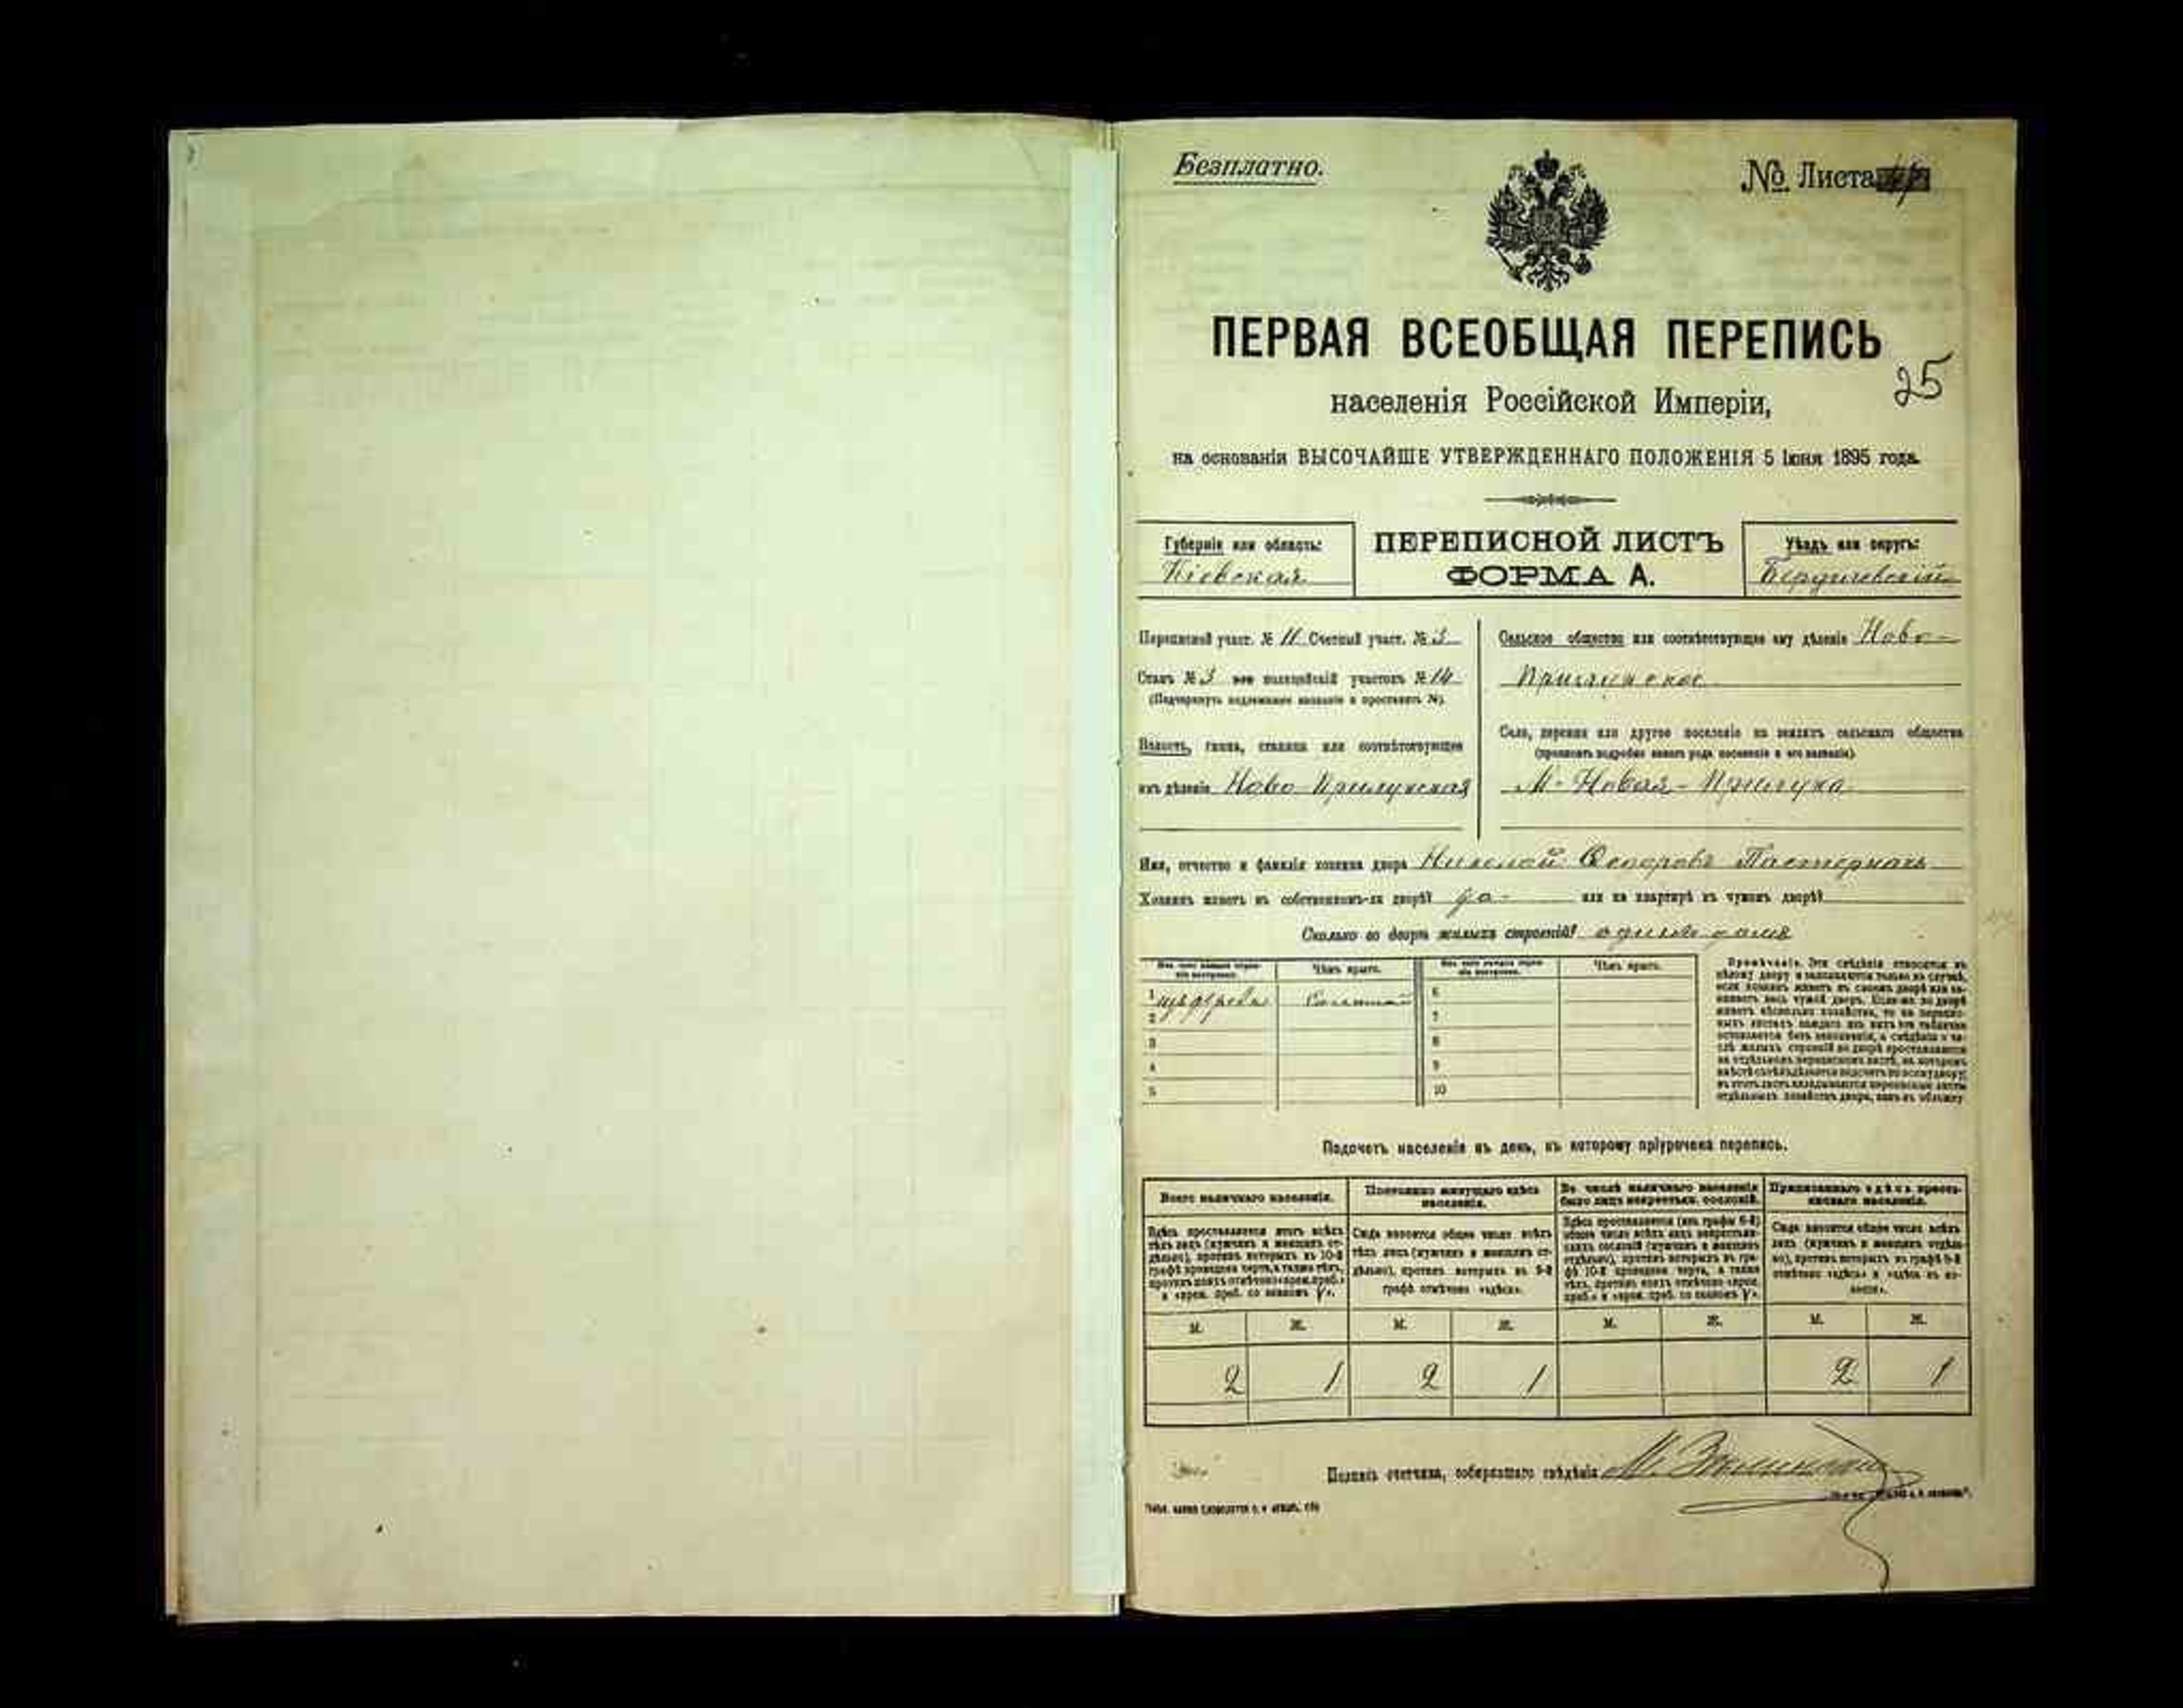 Безплатно.
№ Листа
ПЕРВАЯ ВСЕОБЩАЯ ПЕРЕПИСЬ
25
населенія Россійской Имперіи,
на основаніи ВЫСОЧАЙШЕ УТВЕРЖДЕННАГО ПОЛОЖЕНІЯ 5 Іюня 1895 года.
Губернія или область:
Кіевская
ПЕРЕПИСНОЙ ЛИСТЪ
ФОРМА А.
Уѣздъ или округъ:
Бердичевскій
Переписной участ. № 11 Счетный участ. № 3
Станъ № 3 или полицейскій участокъ № 14
(Подчеркнуть подлежащее названіе и проставить №).
Волость, гмина, станица или соотвѣтствующее
имъ дѣленіе Ново Прилукская
Сельское общество или соотвѣтствующее ему дѣленіе Ново-
Прилукское
Село, деревня или другое поселеніе на земляхъ сельскаго общества
(прописать подробно какого рода поселеніе и его названіе).
М. Новая-Прилука
Имя, отчество и фамилія хозяина двора Николай Федоровъ Пастернакъ
Хозяинъ живетъ въ собственномъ-ли дворѣ? да- или на квартирѣ въ чужомъ дворѣ?
Сколько во дворѣ жилыхъ строеній? одинъ домъ
Изъ чего каждое строеніе построено.
Чѣмъ крыто.
Изъ чего каждое строеніе построено.
Чѣмъ крыто.
1 изъ дерева Соломой 6
2 7
3 8
4 9
5 10
Примѣчаніе. Эти свѣдѣнія относятся къ
цѣлому двору и заполняются только въ случаѣ,
если хозяинъ живетъ въ своемъ дворѣ или за-
нимаетъ весь чужой дворъ. Если-же во дворѣ
живетъ нѣсколько хозяйствъ, то на перепис-
ныхъ листахъ каждаго изъ нихъ эта табличка
оставляется безъ заполненія, а свѣдѣнія о чи-
слѣ жилыхъ строеній во дворѣ проставляются
на отдѣльномъ переписномъ листѣ, на которомъ
вмѣстѣ съ тѣмъ дѣлается подсчетъ по всему двору;
въ этотъ листъ вкладываются переписные листы
отдѣльныхъ хозяйствъ двора, какъ въ обложку.
Подсчетъ населенія въ день, къ которому пріурочена перепись.
Всего наличнаго населенія.
Постоянно живущаго здѣсь населенія.
Въ числѣ наличнаго населенія было лицъ некрестьян. сословій.
Приписаннаго здѣсь крестьянскаго населенія.
Здѣсь проставляется итогъ всѣхъ
тѣхъ лицъ (мужчинъ и женщинъ от-
дѣльно), противъ которыхъ въ 10-й
графѣ проведена черта, а также тѣхъ,
противъ коихъ отмѣчено «врем. преб.»
и «врем. преб. со знакомъ γ».
Сюда вносится общее число всѣхъ
тѣхъ лицъ (мужчинъ и женщинъ от-
дѣльно), противъ которыхъ въ 9-й
графѣ отмѣчено «здѣсь».
Здѣсь проставляется (изъ графы 6-й)
общее число всѣхъ лицъ некрестьян-
скихъ сословій (мужчинъ и женщинъ
отдѣльно), противъ которыхъ въ гра-
фѣ 10-й проведена черта, а также
тѣхъ, противъ коихъ отмѣчено «врем.
преб.» и «врем. преб. со знакомъ γ».
Сюда вносится общее число всѣхъ
лицъ (мужчинъ и женщинъ отдѣль-
но), противъ которыхъ въ графѣ 8-й
отмѣчено «здѣсь» и «здѣсь въ во-
лости».
М. Ж. М. Ж. М. Ж. М. Ж.
2 1 2 1 2 1
Подпись счетчика, собиравшаго свѣдѣнія